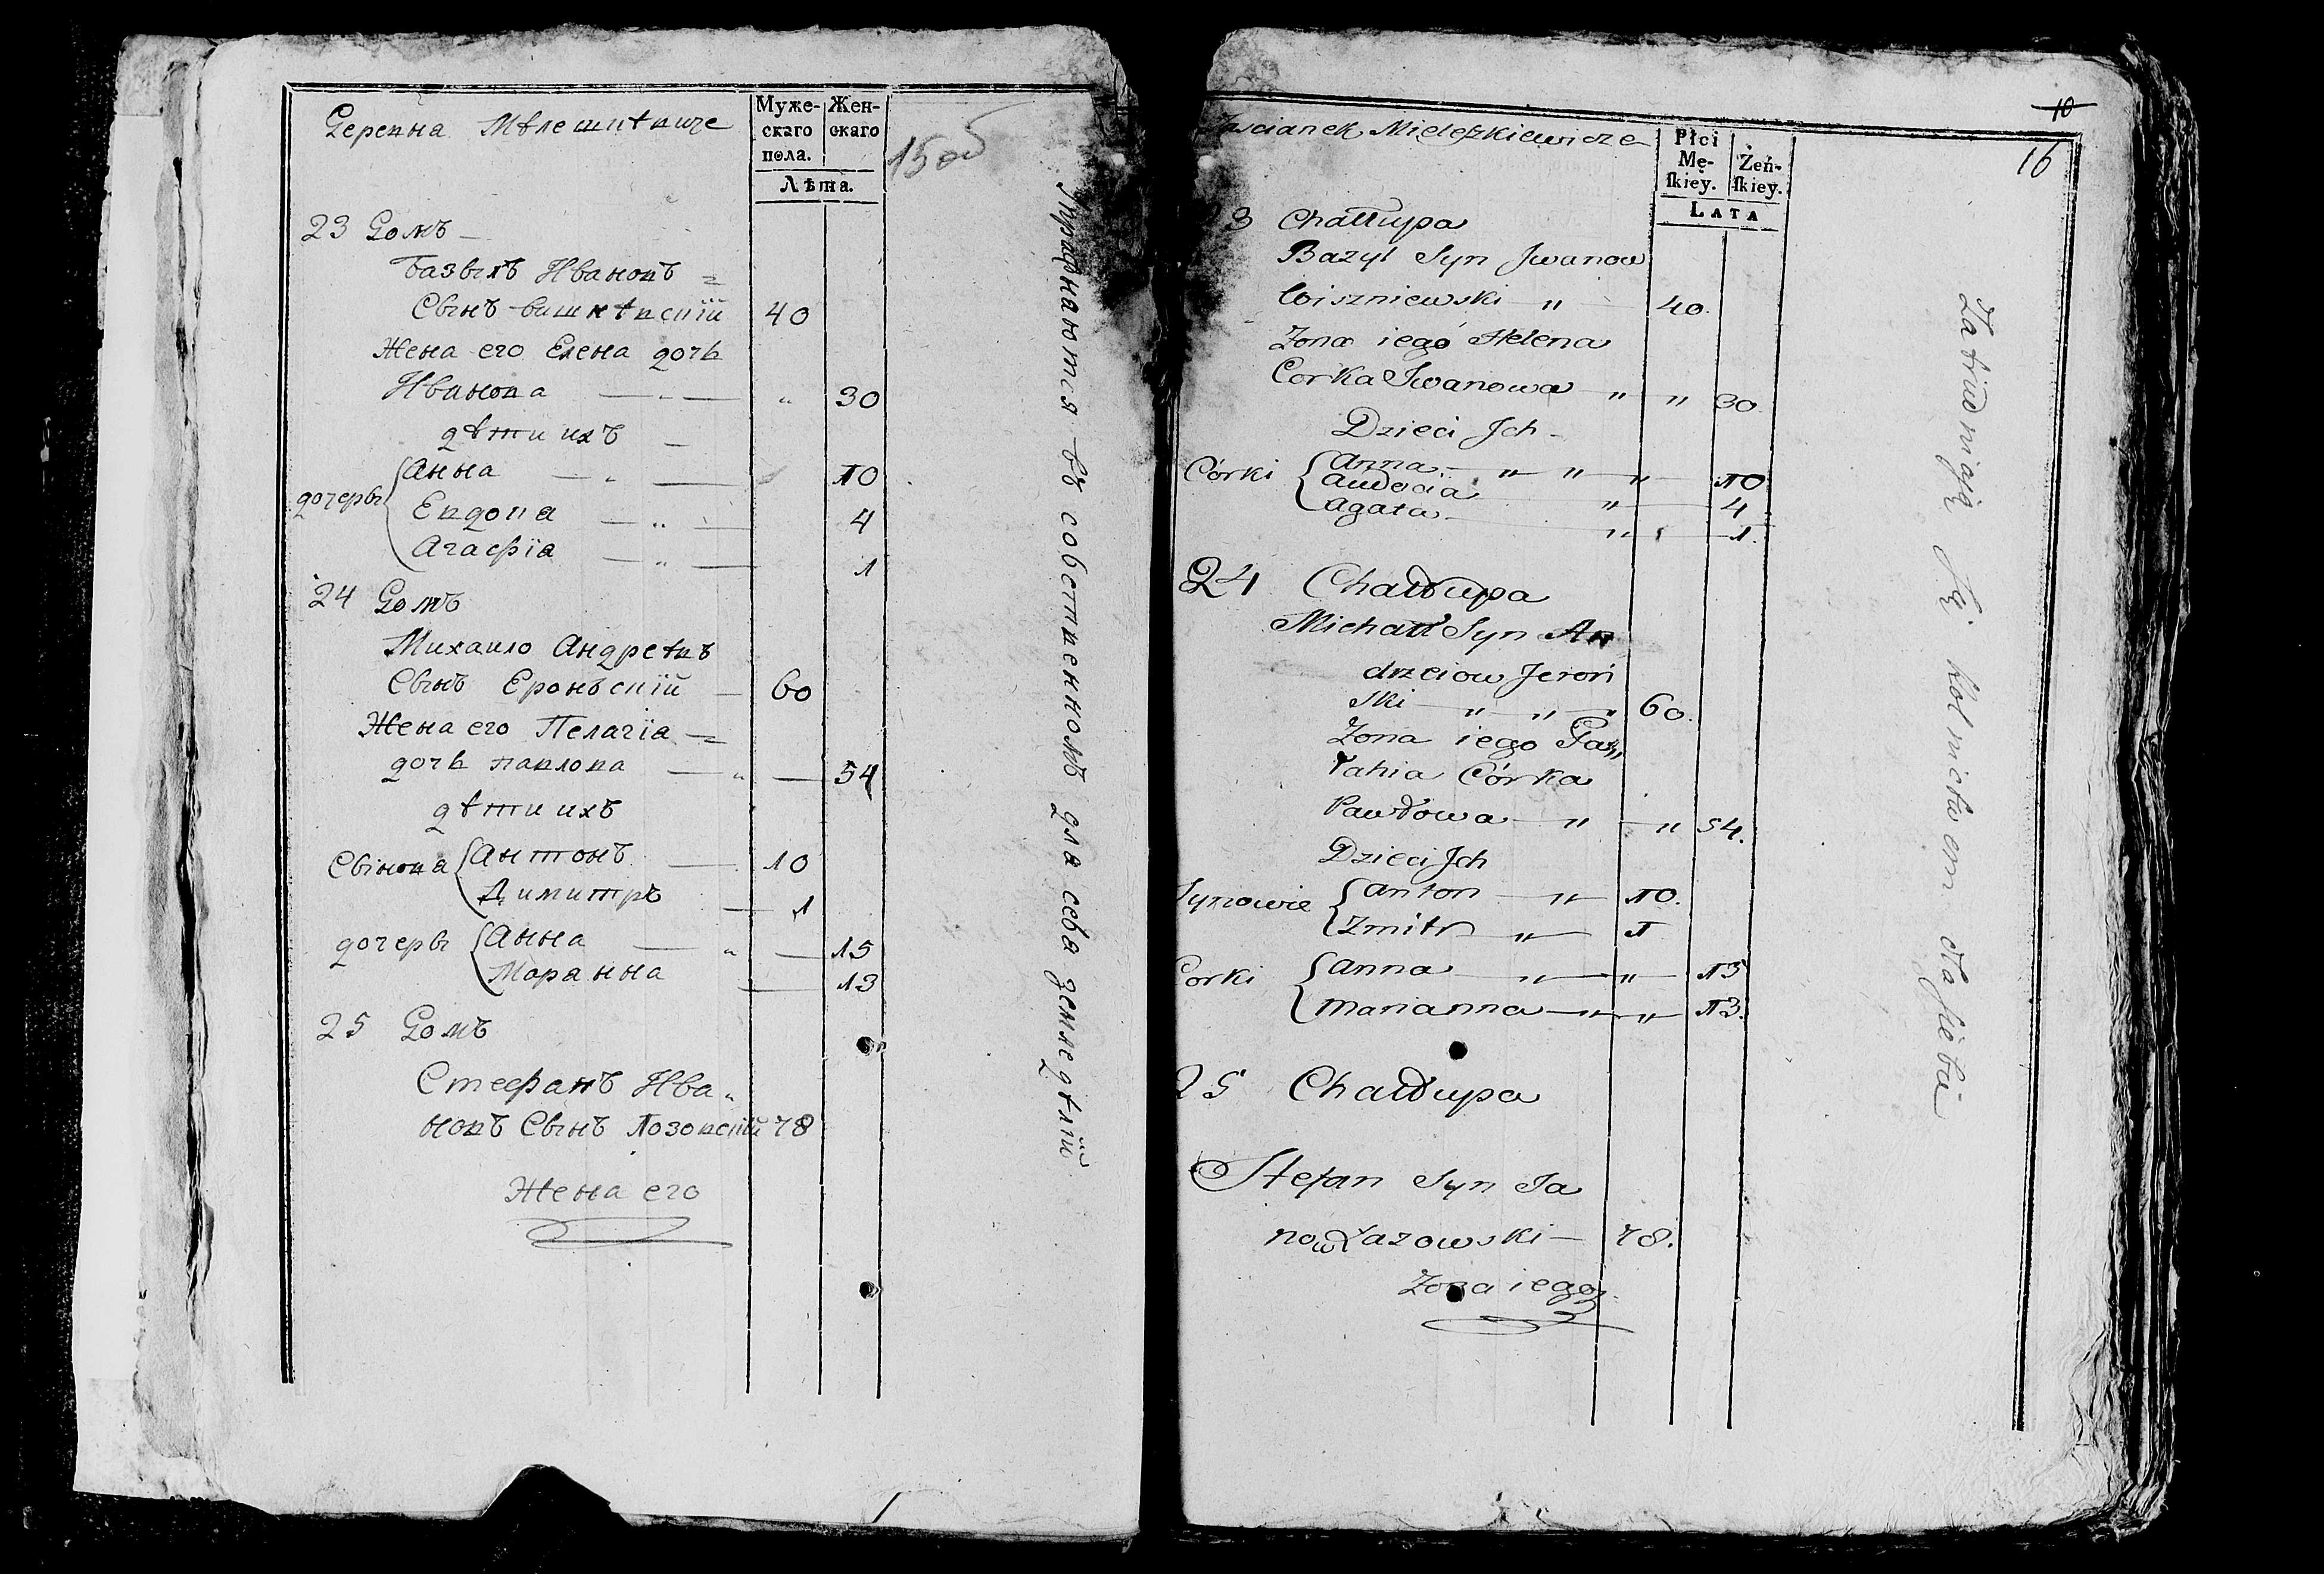 Деревна Мѣлешкѣвиче
Муже-
скаго
пола.
Жен-
скаго
Лѣта.
15 об
23 Домъ —
Базылъ Ивановъ =
Сынъ вишнѣвскїй 40
Жена его Елена дочь
Иванова — „ — „ 30
дѣти ихъ —
дочеры
Анна — „ — 10
Евдокіа — „ — 4
Агафїа — „ — 1
24 Домъ
Михаило Андреѣвъ
Сынъ Еронъскїй — 60
Жена его Пелагїа =
дочь павлова — „ — 54
дѣти ихъ
Сынова
Антонъ — 10
Димитръ — 1
дочеры
Анна — „ — 15
Марянна — 13
25 Домъ
Стефанъ Ива „
новъ Сынъ Лозовскїй 78
Жена его
въ собственномъ для себа земледѣлїй
10
16
Zascianek Mieleszkiewicze
Płci
Mę-
ſkiey.
Żeń-
ſkiey.
LATA
3 Chałłupa
Bazyl Syn Jwanow
Wiszniewski — „ — 40.
Zona iego Helena
Corka Jwanowa — „ „ 30.
Dzieci Jch —
Córki
Anna — „ „ — „ — 10
Audocia — „ — 4
Agata — „ — 1.
24 Chałłupa
Michał Syn An
drzeiow Jeroń
ski — „ — „ — „ 60.
Zona iego Pa„
łahia Córka
Pawłowa — „ — „ 54.
Dzieci Jch
Synowie
Anton — „ — 10.
Zmitr — „ — 1
Corki
Anna — „ — „ — 15
Marianna — „ — „ — 13.
25 Chałłupa
Stefan Syn Ja
now Łazowski — 78.
Zona iego
Zatrudniaią Się Rolnictwem dla siebie